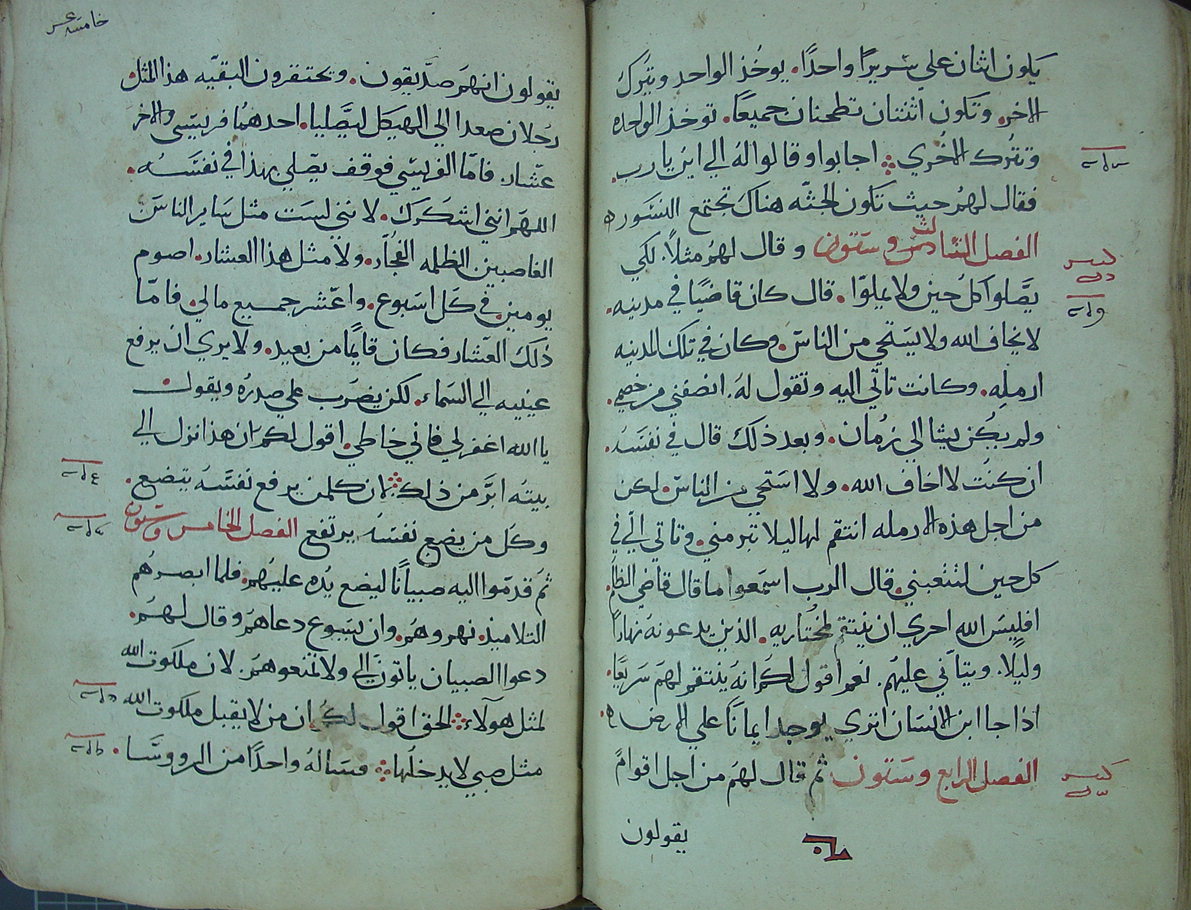 يكون اثنان علي سريرًا واحدًا. يوخذ الواحد ويترك
الاخر. وتكون اثنتان تطحنان جميعًا. توخذ الواحده
وتترك الاخري ❖ اجابوا وقالوا له الي اين يارب.
فقال لهم حيث تكون الجثه هناك تجتمع النسور ه
الفصل الثالث وستون وقال لهم مثلًا. لكي
يصلوا كل حين ولا يملوا. قال كان قاضيًا في مدينه.
لا يخاف الله ولا يستحي من الناس. وكان في تلك المدينه
ارمله. وكانت تاتي اليه وتقول له. انصفني من خصمي.
ولم يكن يشا الي زمان. وبعد ذلك قال في نفسه.
ان كنت لا اخاف الله. ولا استحي من الناس. لكن
من اجل هذه الارمله انتقم لها ليلا تبرمني. وتاتي الي في
كل حين لتتعبني. قال الرب اسمعوا ما قال قاضي الظلم
افليس الله احري ان ينتقم لمختاريه. الذين يدعونه نهارًا
وليلًا. ويتاني عليهم. نعم اقول لكم انه ينتقم لهم سريعًا.
اذا جا ابن الانسان اتري يوجد ايمانًا علي الارض ه
الفصل الرابع وستون ثم قال لهم من اجل اقوامً
يقولون
خامسه عشر
يقولون انهم صديقون. ويحتقرون البقيه هذا المثل.
رجلان صعدا الي الهيكل ليصليا. احدهما فريسي والاخر
عشار. فاما الفريسي فوقف يصلي بهذا في نفسه.
اللهم انني اشكرك. لانني لست مثل ساير الناس
الغاصبين الظلمه الفجار. ولا مثل هذا العشار. اصوم
يومين في كل اسبوع. واعشر جميع مالي. فاما
ذلك العشار فكان قايمًا من بعيد. ولا يري ان يرفع
عينيه الي السماء. لكن يضرب علي صدره ويقول.
يا الله اغفر لي فاني خاطي. اقول لكم ان هذا نزل الي
بيته ابر من ذلك ❖ ان كلمن يرفع نفسه يتضع.
وكل من يضع نفسه يرتفع الفصل الخامس وستون
ثم قدموا اليه صبيانًا ليضع يده عليهم. فلما ابصرهم
التلاميذ. نهروهم. وان يسوع دعاهم وقال لهم.
دعوا الصبيان ياتون الي ولا تمنعوهم. لان ملكوت الله
لمثل هولاء ❖ الحق اقول لكم ان من لا يقبل ملكوت الله
مثل صبي لا يدخلها ❖ فساله واحدًا من الرووسا.